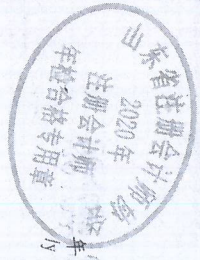 山东省注册会计师协
2020年
注册会计师
年检合格专用章
年